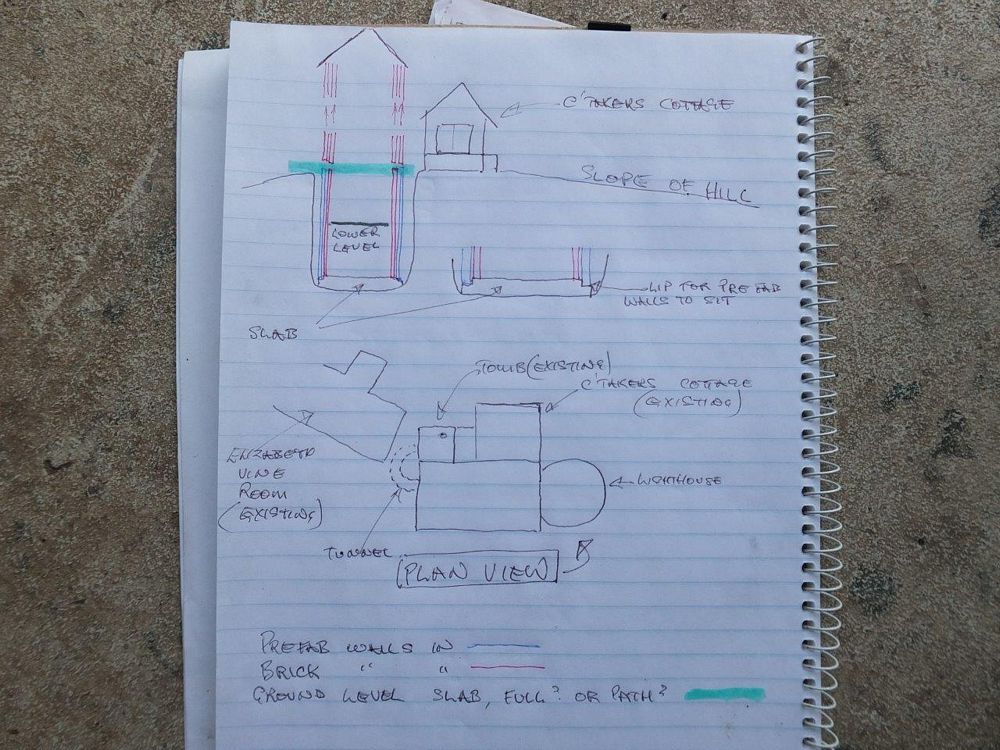 C'TAKERS COTTAGE
SLOPE OF HILL
LOWER
LEVEL
LIP FOR PREFAB
WALLS TO SIT
SLAB
TOMB (EXISTING)
C'TAKERS COTTAGE
(EXISTING)
ELIZABETH
VINE
ROOM
(EXISTING)
LIGHTHOUSE
TUNNEL
PLAN VIEW
PREFAB WALLS IN
BRICK " "
GROUND LEVEL SLAB, FULL? OR PATH?